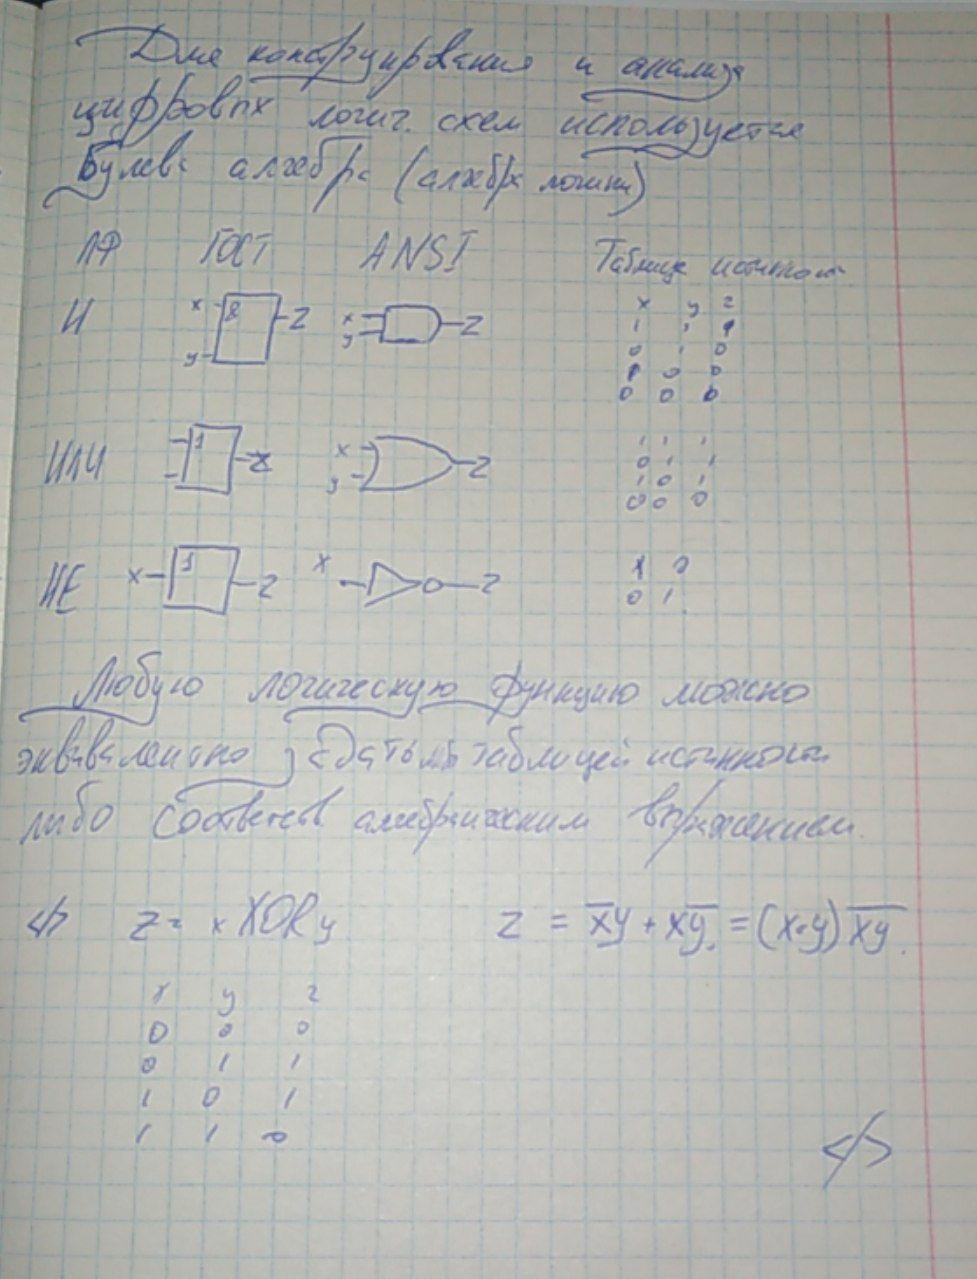 Для конструирования и анализа
цифровых логич. схем используется
Булева алгебра (алгебра логики)
ЛФ ГОСТ ANSI Таблица истинности
x y z
И x y & Z x y Z
1 1 1
0 1 0
1 0 0
0 0 0
ИЛИ 1 z x y Z
1 1 1
0 1 1
1 0 1
0 0 0
НЕ x 1 Z x Z
1 0
0 1
Любую логическую функцию можно
эквивалентно задать либо таблицей истинности
либо соответств алгебраическим выражением.
</> z = x XOR y z = x̅y + xy̅ = (x+y) x̅y̅
x y z
0 0 0
0 1 1
1 0 1
1 1 0
</>